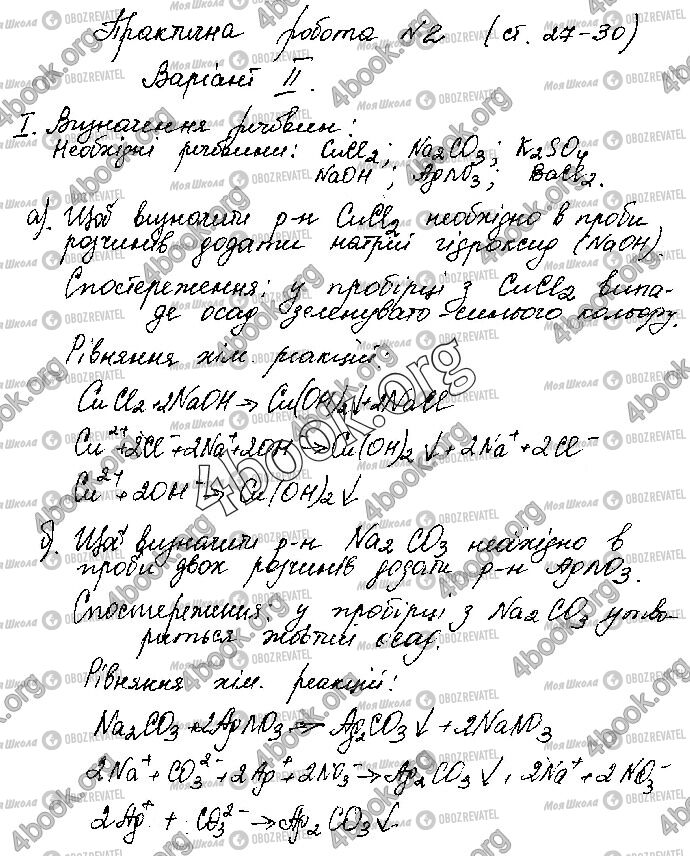 Практична робота №2 (ст. 27-30)
Варіант II.
I. Визначення речовин:
Необхідні речовини: CuCl2; Na2CO3; K2SO4
NaOH; AgNO3; BaCl2.
а). Щоб визначити р-н CuCl2 необхідно в проби
розчинів додати натрій гідроксид (NaOH).
Спостереження: у пробірці з CuCl2 випа-
де осад зеленувато-синього кольору.
Рівняння хім. реакцій:
CuCl2+2NaOH→Cu(OH)2↓+2NaCl
Cu²⁺+2Cl⁻+2Na⁺+2OH⁻→Cu(OH)2↓+2Na⁺+2Cl⁻
Cu²⁺+2OH⁻→Cu(OH)2↓
б). Щоб визначити р-н Na2CO3 необхідно в
проби двох розчинів додати р-н AgNO3.
Спостереження: у пробірці з Na2CO3 утво-
риться жовтий осад.
Рівняння хім. реакцій:
Na2CO3+2AgNO3→Ag2CO3↓+2NaNO3
2Na⁺+CO3²⁻+2Ag⁺+2NO3⁻→Ag2CO3↓+2Na⁺+2NO3⁻
2Ag⁺+CO3²⁻→Ag2CO3↓
4book.org
Моя Школа OBOZREVATEL